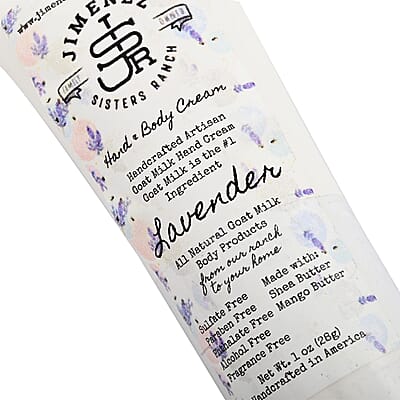 www.jimene
JIMENEZ
FAMILY
OWNED
JTSR
SISTERS RANCH
Hand & Body Cream
Handcrafted Artisan
Goat Milk Hand Cream
Goat Milk is the #1
Ingredient
Lavender
All Natural Goat Milk
Body Products
from our ranch
to your home
Sulfate Free
Paraben Free
Phthalate Free
Alcohol Free
Fragrance Free
Made with:
Shea Butter
Mango Butter
Net Wt. 1 oz (28g)
Handcrafted in America